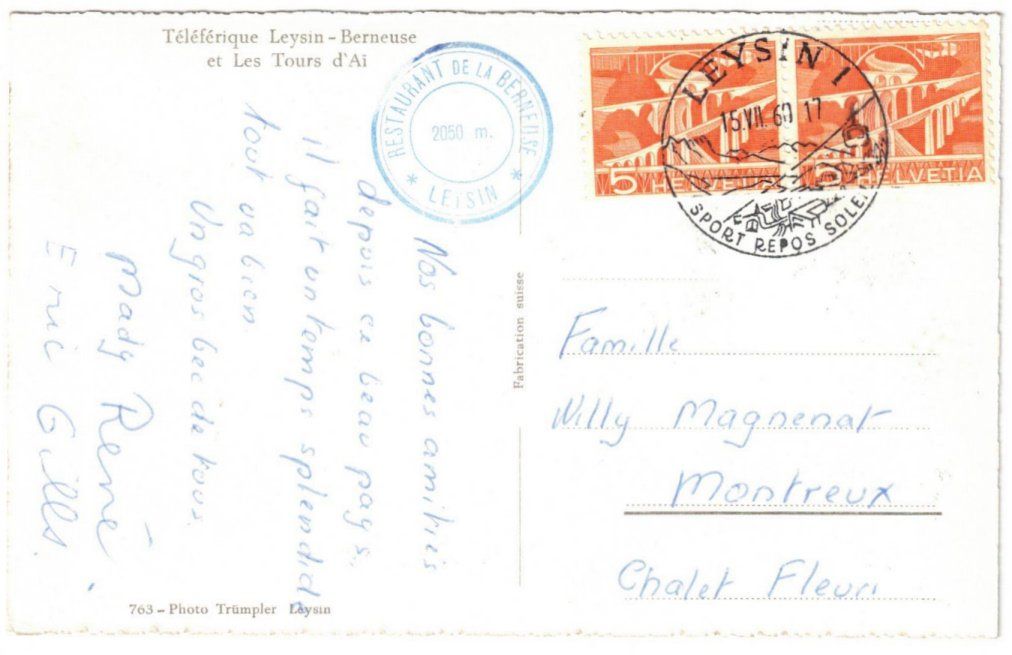 Téléférique Leysin - Berneuse
et Les Tours d'Aï
RESTAURANT DE LA BERNEUSE
2050 m.
* LEYSIN *
Nos bonnes amitiés
depuis ce beau pays.
il fait un temps splendide
tout va bien
Un gros bec de tous.
Mady René
Eric Gilles.
763 - Photo Trümpler Leysin
Fabrication suisse
5 HELVETIA
5 HELVETIA
LEYSIN 1
15.VII.60 17
SPORT REPOS SOLEIL
Famille
Willy Magnenat
Montreux
Chalet Fleuri